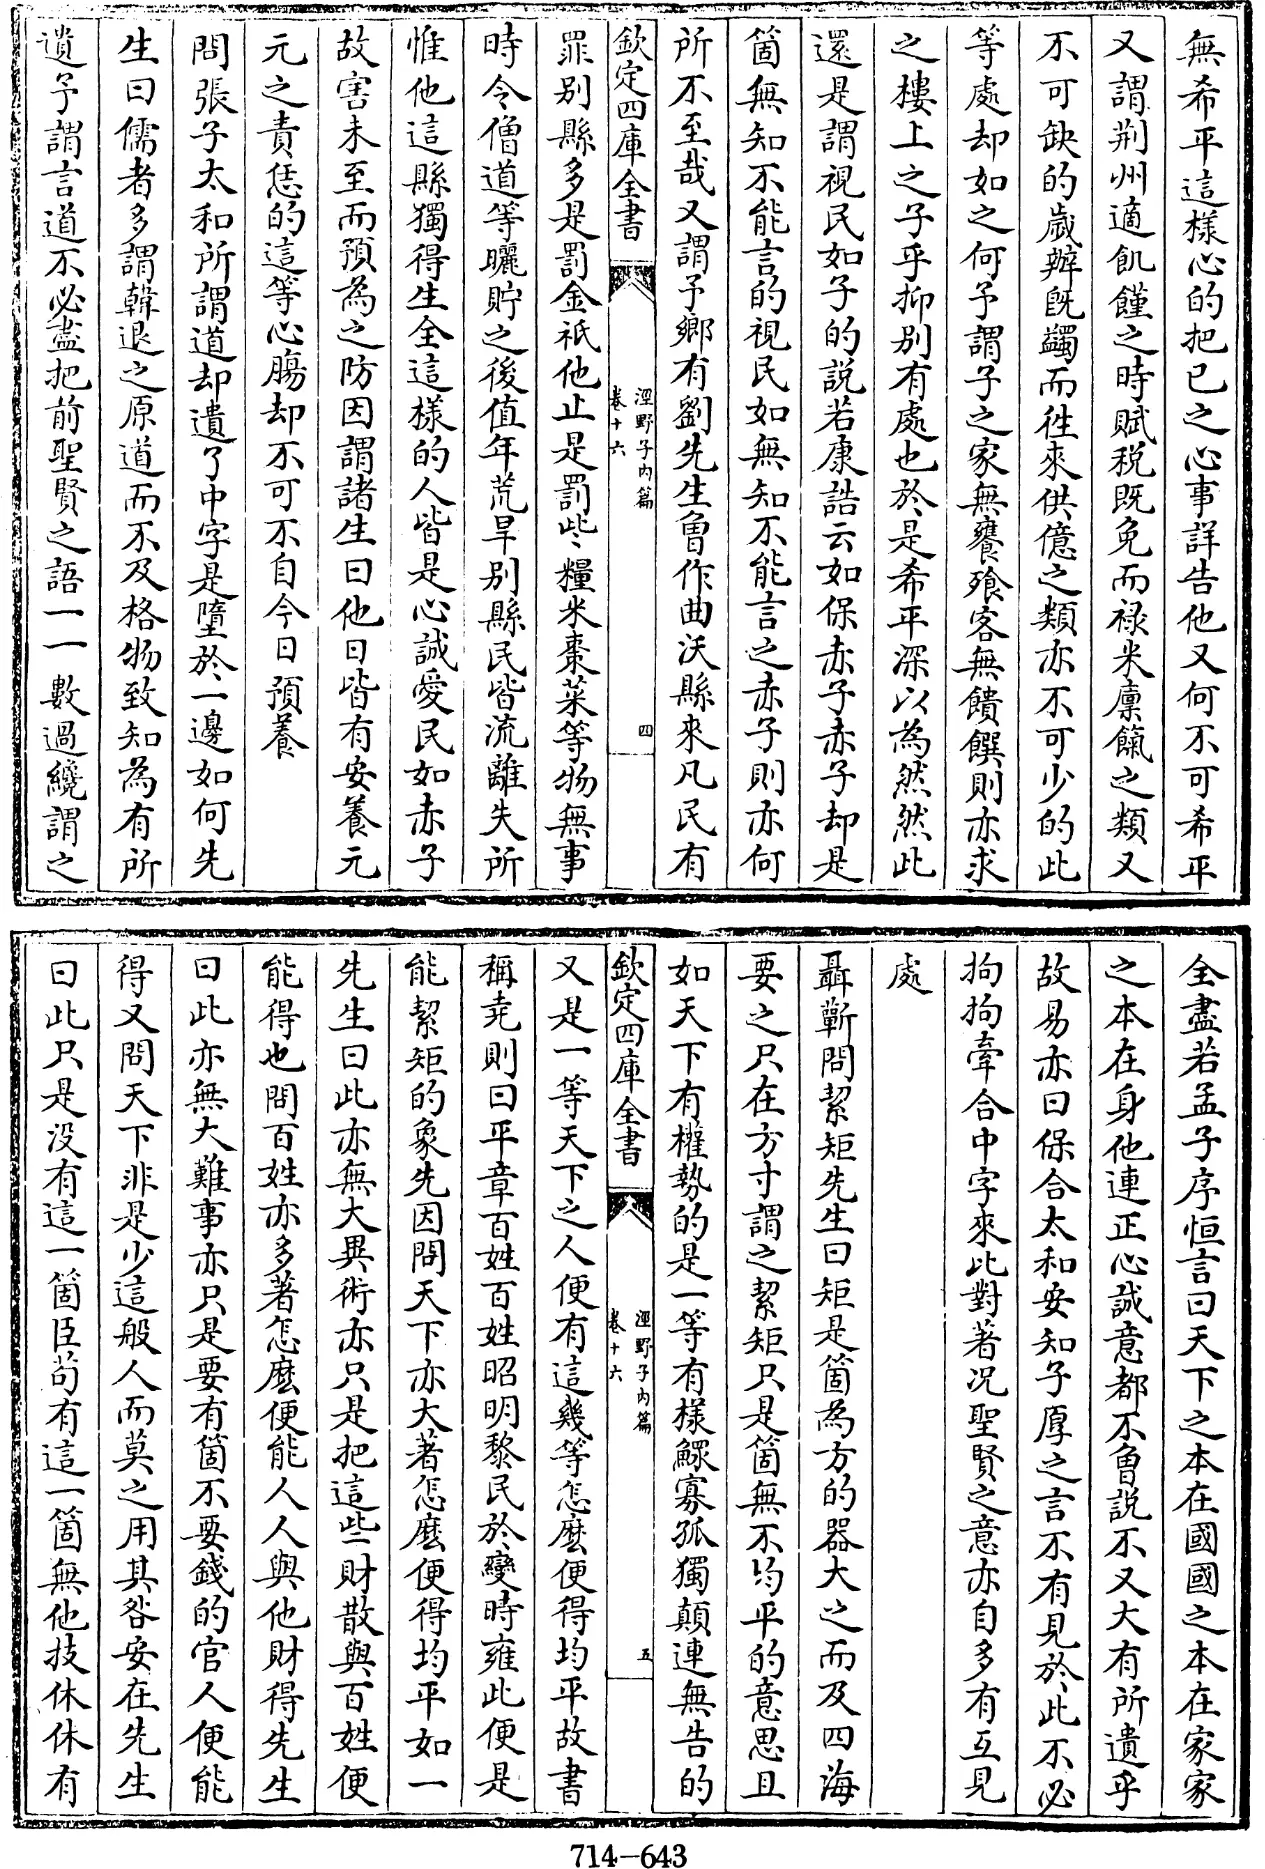 無希平這様心的把已之心事詳告他又何不可希平
又謂荆州適飢饉之時賦税既免而禄米廪餼之類又
不可缺的歳辦既蠲而徃來供億之類亦不可少的此
等處却如之何予謂子之家無饔飱客無饋饌則亦求
之樓上之子乎抑别有處也於是希平深以為然然此
還是謂視民如子的説若康誥云如保赤子赤子却是
箇無知不能言的視民如無知不能言之赤子則亦何
所不至哉又謂予鄉有劉先生曽作曲沃縣來凡民有
欽定四庫全書
涇野子内篇
卷十六
四
罪别縣多是罰金祇他止是罰些糧米棗菜等物無事
時令僧道等曬貯之後值年荒旱别縣民皆流離失所
惟他這縣獨得生全這樣的人皆是心誠愛民如赤子
故害未至而預為之防因謂諸生曰他日皆有安養元
元之責恁的這等心膓却不可不自今日預養
問張子太和所謂道却遺了中字是墮於一邊如何先
生曰儒者多謂韓退之原道而不及格物致知為有所
遺予謂言道不必盡把前聖賢之語一一數過纔謂之
全盡若孟子序恒言曰天下之本在國國之本在家家
之本在身他連正心誠意都不曽説不又大有所遺乎
故易亦曰保合太和安知子厚之言不有見於此不必
拘拘牽合中字來比對著况聖賢之意亦自多有互見
處
聶蘄問絜矩先生曰矩是箇為方的器大之而及四海
要之只在方寸謂之絜矩只是箇無不均平的意思且
如天下有權勢的是一等有様鰥寡孤獨顛連無告的
欽定四庫全書
涇野子内篇
卷十六
五
又是一等天下之人便有這幾等怎麽便得均平故書
稱堯則曰平章百姓百姓昭明黎民於變時雍此便是
能絜矩的象先因問天下亦大著怎麽便得均平如一
先生曰此亦無大異術亦只是把這些財散與百姓便
能得也問百姓亦多著怎麽便能人人與他財得先生
曰此亦無大難事亦只是要有箇不要錢的官人便能
得又問天下非是少這般人而莫之用其咎安在先生
曰此只是没有這一箇臣茍有這一箇無他技休休有
714-643